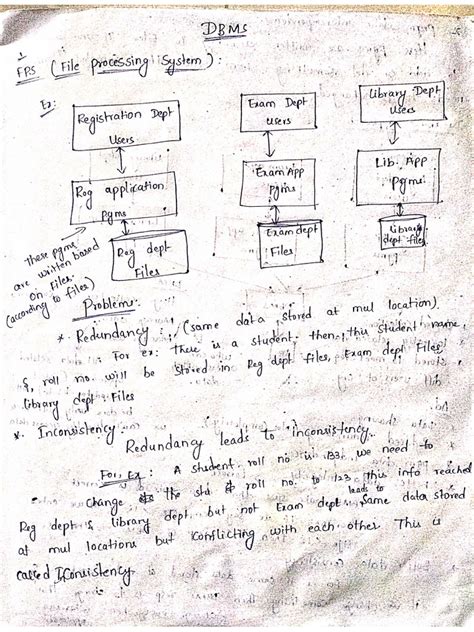 DBMS
1
FPS (File processing System):
Ex:
Registration Dept Users
Exam Dept Users
Library Dept Users
Reg application Pgms
Exam App Pgms
Lib. App Pgms
Reg dept Files
Exam dept Files
Library dept files
these pgms
are written based
on Files.
(according to files)
Problems:
* Redundancy: (same data stored at mul location)
For ex: there is a student, then, this student name
&, roll no. will be stored in Reg dept files, Exam dept Files
library dept Files
* Inconsistency:
Redundancy leads to inconsistency.
For Ex: A student roll no is 133, we need to
change the std roll no. to 123 this info reached
Reg dept & library dept. but not Exam dept leads to Same data stored
at mul locations but conflicting with each other This is
called Iconsistency